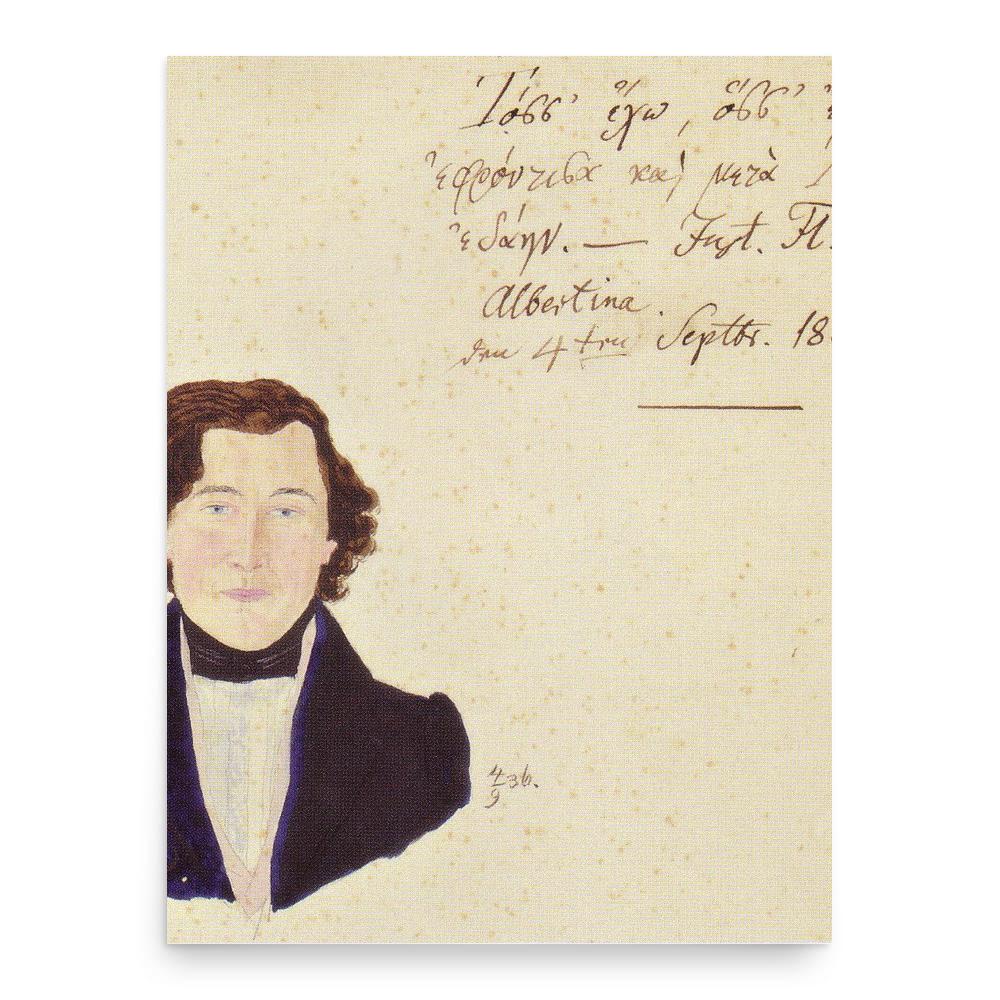 Τόσσ' ἔχω, ὅσσ'
ἐφρόντισα καὶ μετὰ
ἐδάην. — Just. Fl.
Albertina.
den 4ten Septbr. 18
4/9 36.